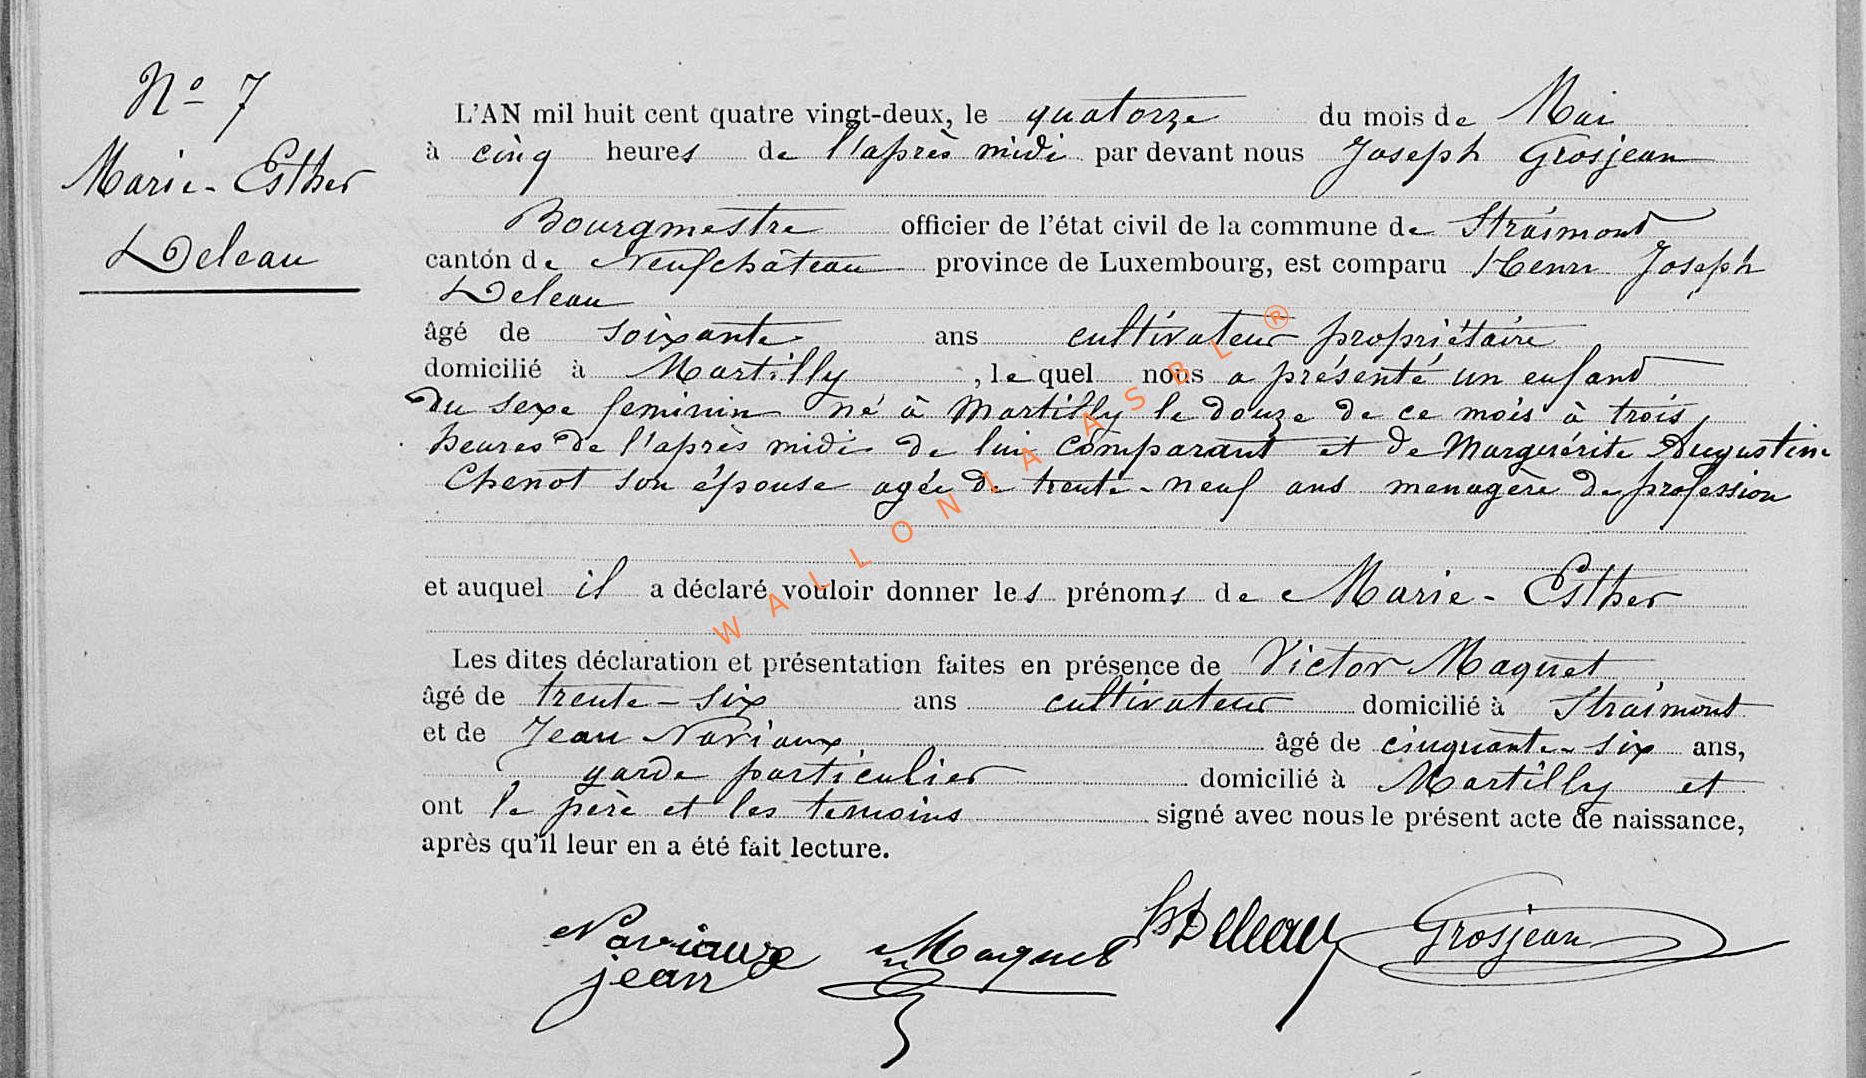 Nº 7
Marie-Esther
Deleau
L'AN mil huit cent quatre vingt-deux, le quatorze du mois de Mai
à cinq heures de l'après midi par devant nous Joseph Grosjean
Bourgmestre officier de l'état civil de la commune de Straimont
canton de Neufchâteau province de Luxembourg, est comparu Henri Joseph
Deleau
âgé de soixante ans cultivateur propriétaire
domicilié à Martilly, lequel nous a présenté un enfant
du sexe feminin né à Martilly le douze de ce mois à trois
heures de l'après midi de lui comparant et de Marguérite Augustine
Chenot son épouse agée de trente-neuf ans menagère de profession
et auquel il a déclaré vouloir donner les prénoms de Marie-Esther
Les dites déclaration et présentation faites en présence de Victor Maquet
âgé de trente-six ans cultivateur domicilié à Straimont
et de Jean Noviaux âgé de cinquante-six ans,
garde particulier domicilié à Martilly et
ont le père et les temoins signé avec nous le présent acte de naissance,
après qu'il leur en a été fait lecture.
Noviaux Maquet Deleau Grosjean
jean
WALLONIA ASBL ®